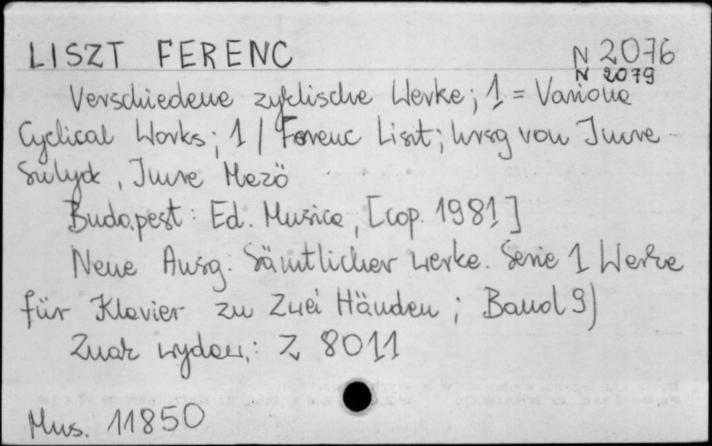 LISZT FERENC N 2076
N 2079
Verschiedene zyklische Werke; 1 = Various
Cyclical Works; 1 / Ferenc Liszt; hrsg von Imre
Sulyok, Imre Mezö
Budapest: Ed. Musica, [cop. 1981]
Neue Ausg. Sämtlicher Werke. Serie 1 Werke
für Klavier zu Zwei Händen; Band 9)
Znak wydaw.: Z 8011
Mus. 11850